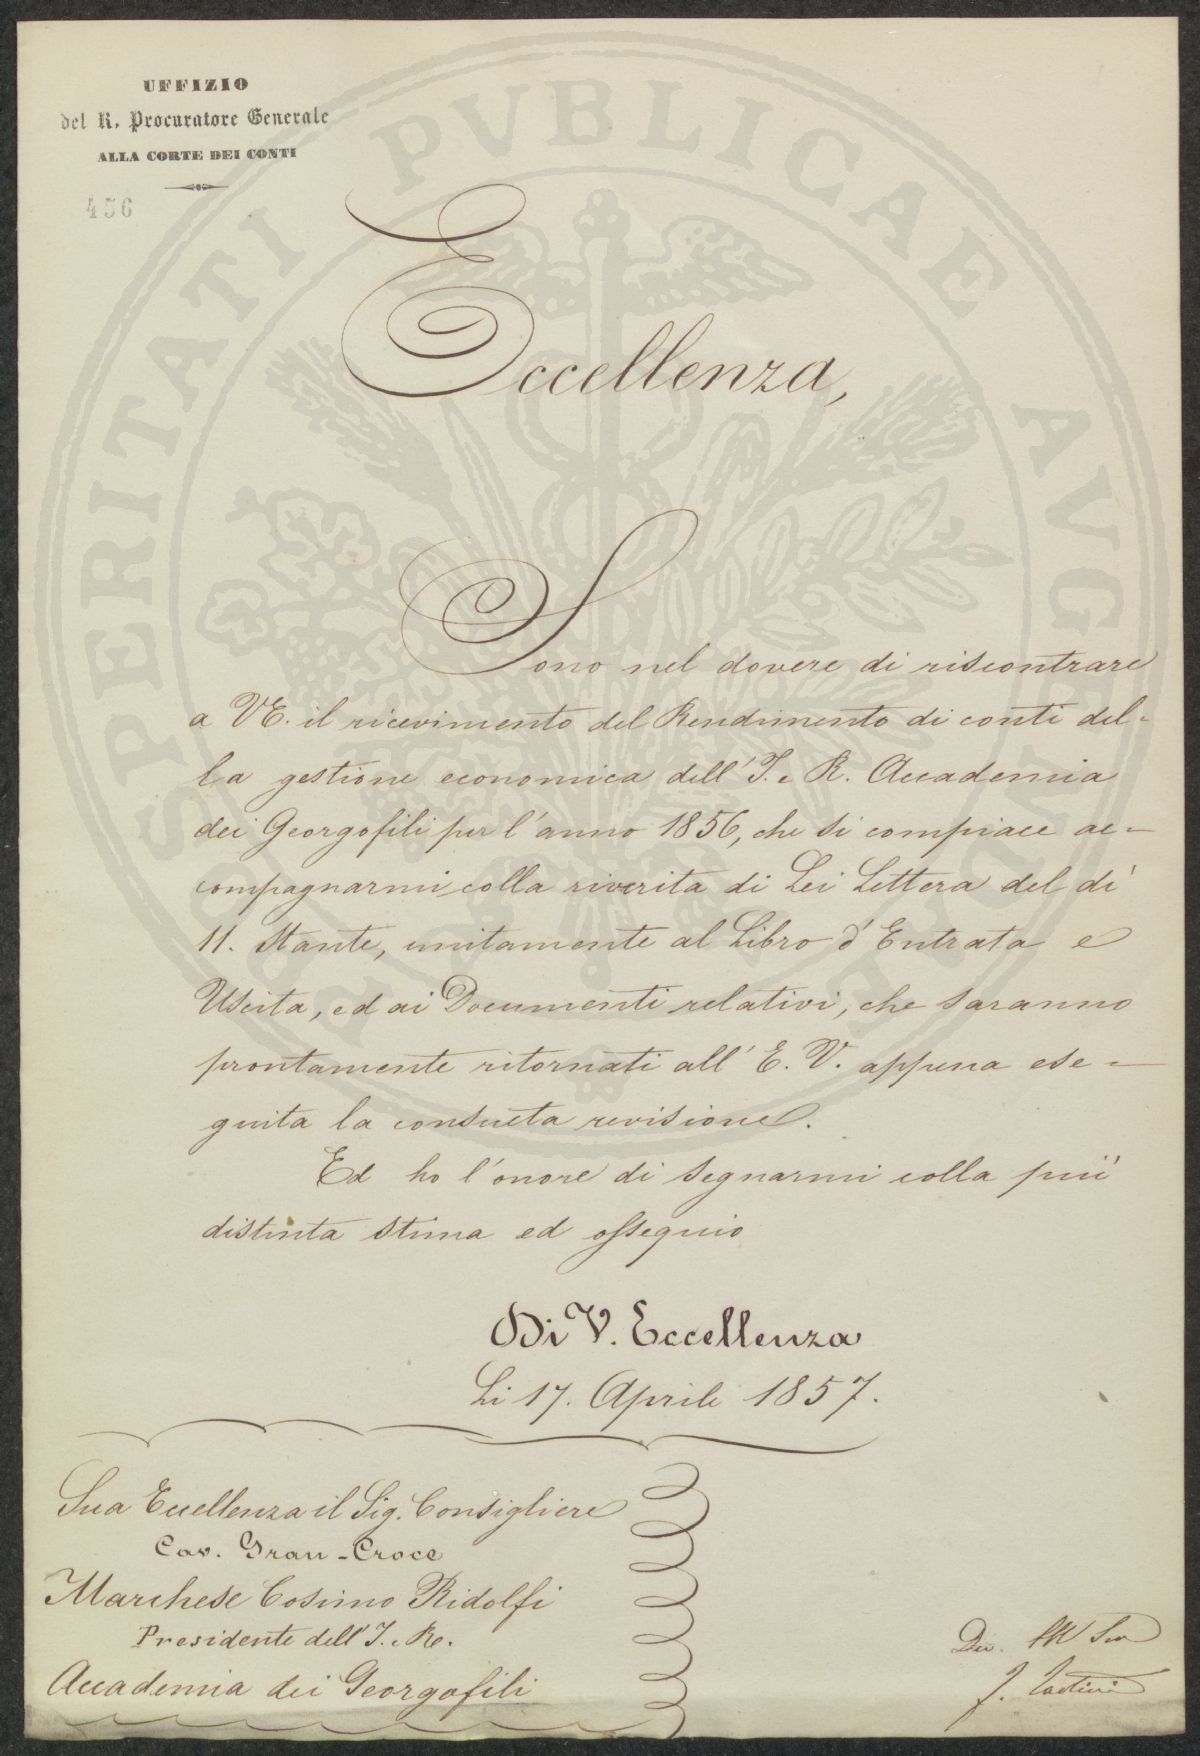 UFFIZIO
del R. Procuratore Generale
ALLA CORTE DEI CONTI
456
PROSPERITATI PVBLICAE AVGENDAE
Eccellenza,
Sono nel dovere di riscontrare
a VE. il ricevimento del Rendimento di conti del-
la gestione economica dell' I. e R. Accademia
dei Georgofili per l'anno 1856, che si compiace ac-
compagnarmi colla riverita di Lei Lettera del dì
11. Stante, unitamente al Libro d'Entrata e
Uscita, ed ai Documenti relativi, che saranno
prontamente ritornati all' E. V. appena ese-
guita la consueta revisione.
Ed ho l'onore di segnarmi colla più
distinta stima ed ossequio
Di V. Eccellenza
Li 17. Aprile 1857.
Sua Eccellenza il Sig. Consigliere
Cav. Gran-Croce
Marchese Cosimo Ridolfi
Presidente dell' I. e R.
Accademia dei Georgofili